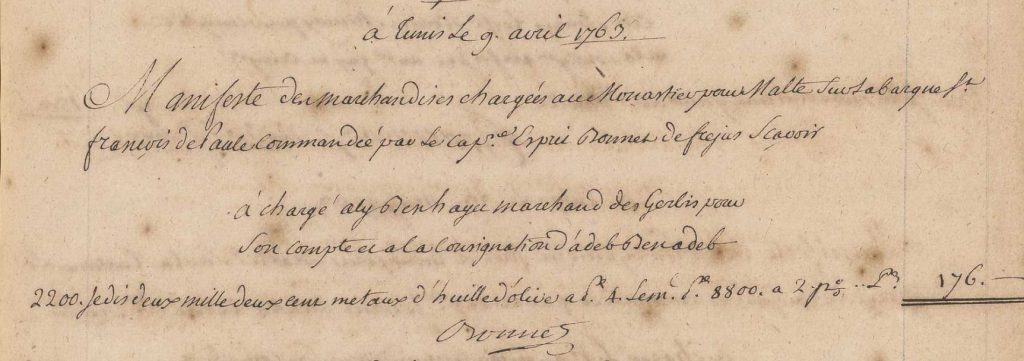 à Tunis Le 9. avril 1763.
Manifeste des marchandises chargées au Monastier pour Malte sur la barque St.
françois de Paule Commandée par Le Capne. Esprit Bonnet de frejus Scavoir
à chargé aly Ben haye marchand des Gerbis pour
Son compte et a la Consignation d'adeb Ben adeb
2200. Je dis deux mille deux cent metaux d'huille d'olive a Pre. 4. Le mc. Pres. 8800. a 2 p% .. Pres. 176. —
Bonnet